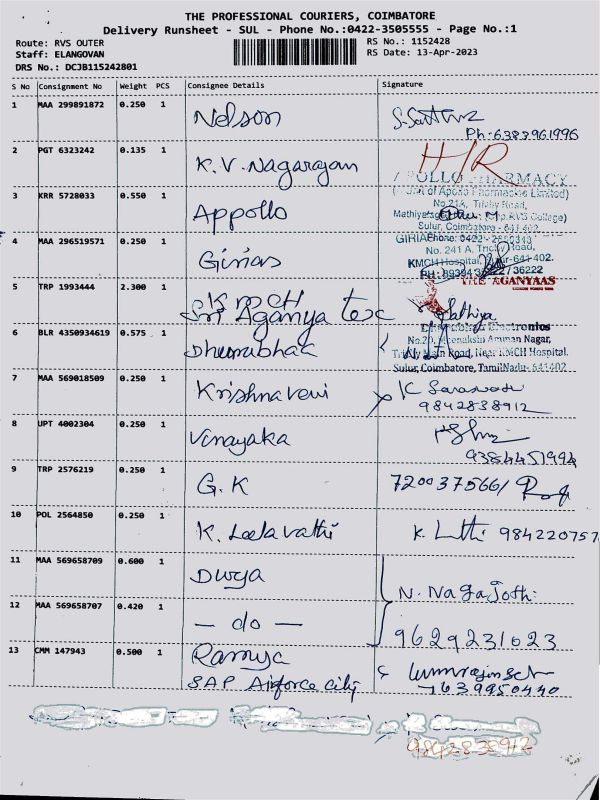 THE PROFESSIONAL COURIERS, COIMBATORE
Delivery Runsheet - SUL - Phone No.:0422-3505555 - Page No.:1
Route: RVS OUTER
Staff: ELANGOVAN
DRS No.: DCJB115242801
RS No.: 1152428
RS Date: 13-Apr-2023
S No Consignment No Weight PCS Consignee Details Signature
1 MAA 299891872 0.250 1 Nelson
Ph:6383961996
2 PGT 6323242 0.135 1 K.V. Nagarajan H/R
APOLLO PHARMACY
(A Unit of Apollo Pharmacies Limited)
3 KRR 5728033 0.550 1 Appollo
No.21A, Trichy Road,
RVS College)
Sulur, Coimbatore - 641 402.
4 MAA 296519571 0.250 1 Girias
GIRIA Phone: 0422 -
No. 241 A, Trichy Road,
KMCH Hospital, 641 402.
5 TRP 1993444 2.300 1 KMCH
Sri Aganya Tex
THE AGANYAAS
Sathiya
6 BLR 4350934619 0.575 1
Electronics
No.20, Meenakshi Amman Nagar,
Trichy Main Road, Near KMCH Hospital,
Sulur, Coimbatore, TamilNadu- 641402
7 MAA 569018509 0.250 1 Krishnaveni K Saraswathi
9842838912
8 UPT 4002304 0.250 1 Vinayaka
9384451994
9 TRP 2576219 0.250 1 G.K 7200375661
10 POL 2564850 0.250 1 K. Leelavathi K. 984220757
11 MAA 569658709 0.600 1 Durga
N. Nagajothi
12 MAA 569658707 0.420 1 — do —
9629231023
13 CMM 147943 0.500 1 Ramya
SAP Airforce city
7639950440
9842838912